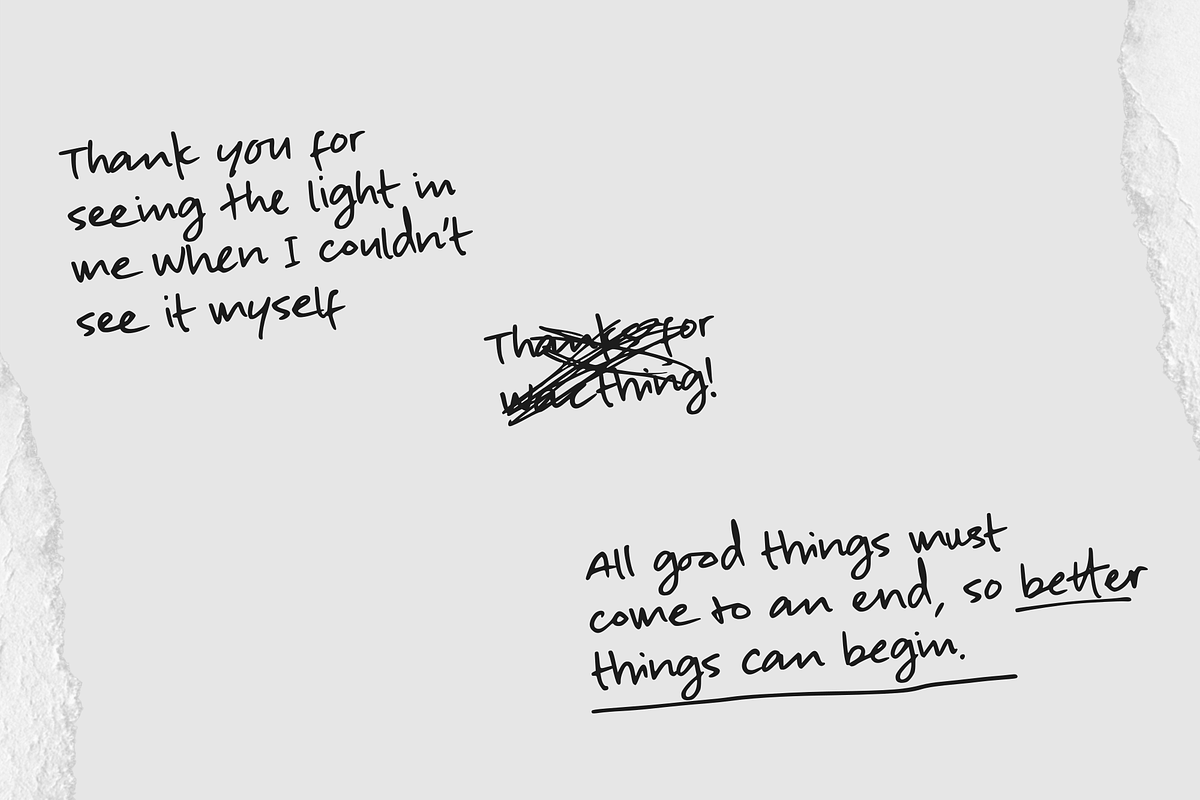 Thank you for
seeing the light in
me when I couldn't
see it myself
Thanks for
thing!
All good things must
come to an end, so better
things can begin.